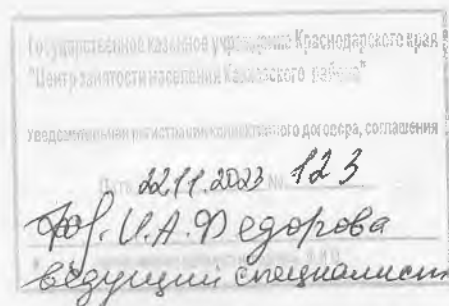 Государственное казенное учреждение Краснодарского края
"Центр занятости населения Кавказского района"
Уведомительная регистрация коллективного договора, соглашения
Дата 22.11.2023 № 123
И.А. Федорова
ведущий специалист